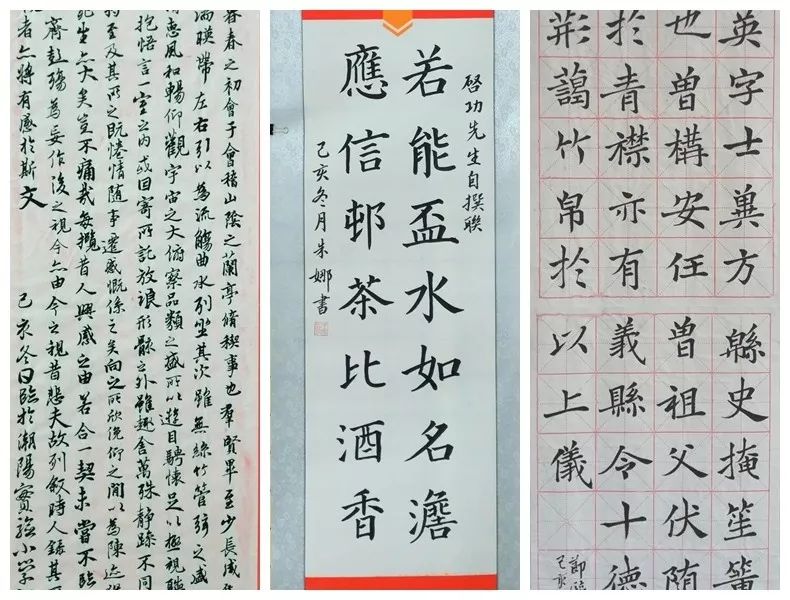 暮春之初會于會稽山陰之蘭亭脩禊事也羣賢畢至少長咸
湍暎帶左右引以為流觴曲水列坐其次雖無絲竹管弦之盛
惠風和暢仰觀宇宙之大俯察品類之盛所以遊目騁懷足以極視聽
抱悟言一室之內或因寄所託放浪形骸之外雖趣舍萬殊靜躁不同
至及其所之既惓情隨事遷感慨係之矣向之所欣俛仰之間以為陳迹
死生亦大矣豈不痛哉每攬昔人興感之由若合一契未嘗不臨
齊彭殤為妄作後之視今亦由今之視昔悲夫故列敘時人錄其
者亦將有感於斯文 己亥冬日臨於潮陽實驗小學
啓功先生自撰聯
若能盃水如名澹
應信邨茶比酒香
己亥冬月朱娜書
英字士兾方
也曽構安任
於青襟亦有
荊藹竹帛於
緜史掩笙簧
曽祖父伏随
義縣令十德
以上儀
節臨
己亥